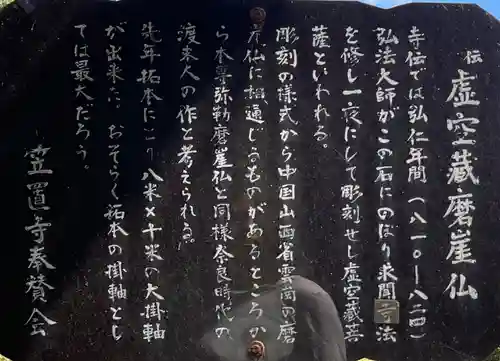 伝 虚空蔵磨崖仏
寺伝では弘仁年間(八一〇ー八二四)
弘法大師がこの石にのぼり求聞 法
を修し一夜にして彫刻せし虚空蔵菩
薩といわれる。
彫刻の様式から中国山西省雲崗の磨
崖仏に相通じるものがあるところか
ら本尊弥勒磨崖仏と同様奈良時代の
渡来人の作と考えられる。
先年拓本により八米×十米の大掛軸
が出来た、おそらく拓本の掛軸とし
ては最大だろう。
笠置寺奉賛会